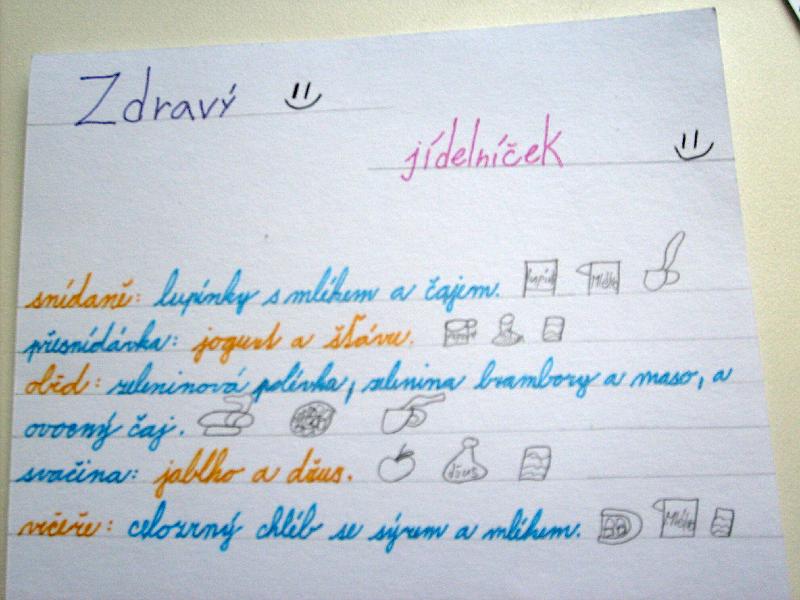 Zdravý
jídelníček
snídaně: lupínky s mlékem a čajem.
přesnídávka: jogurt a šťávu.
oběd: zeleninová polívka, zelenina brambory a maso, a
ovocný čaj.
svačina: jablko a džus.
džus
večeře: celozrný chléb se sýrem a mlékem.